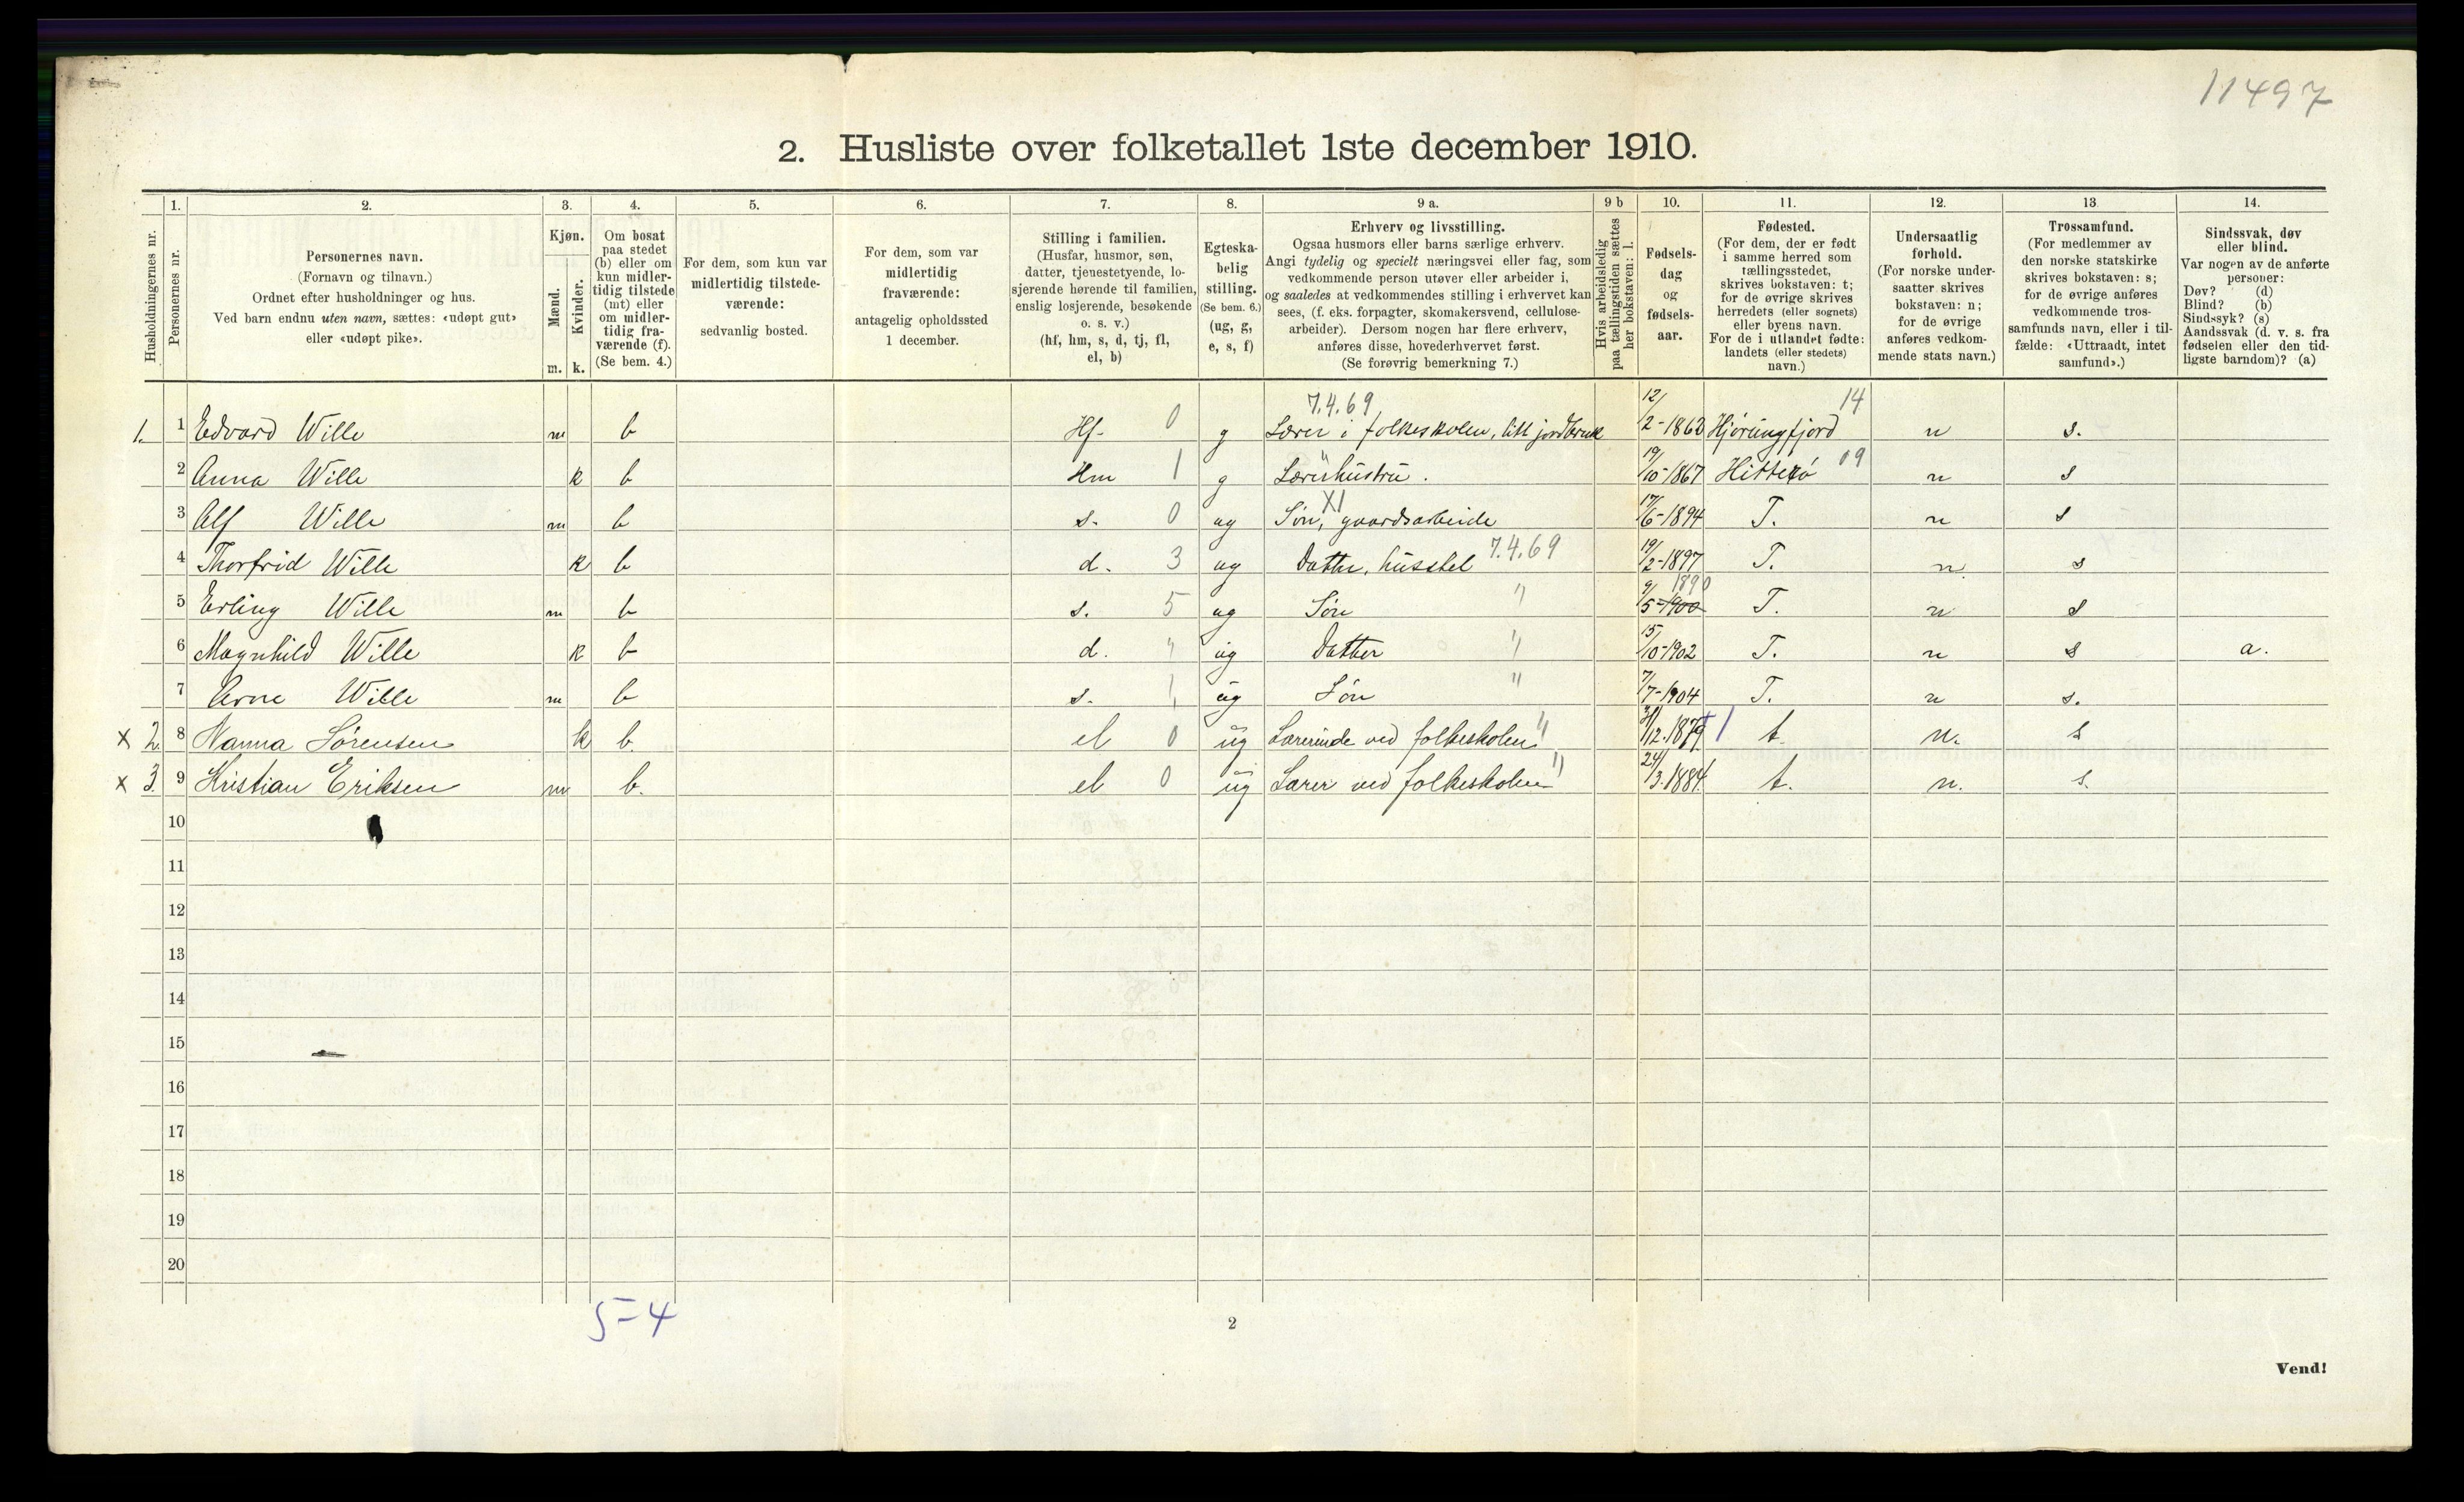 11497
2. Husliste over folketallet 1ste december 1910.
Husholdningernes nr.
1. Personernes nr.
2. Personernes navn.
(Fornavn og tilnavn.)
Ordnet efter husholdninger og hus.
Ved barn endnu uten navn, sættes: «udøpt gut»
eller «udøpt pike».
3. Kjøn.
Mænd. Kvinder.
m. k.
4. Om bosat
paa stedet
(b) eller om
kun midler-
tidig tilstede
(mt) eller
om midler-
tidig fra-
værende (f).
(Se bem. 4.)
5. For dem, som kun var
midlertidig tilstede-
værende:
sedvanlig bosted.
6. For dem, som var
midlertidig
fraværende:
antagelig opholdssted
1 december.
7. Stilling i familien.
(Husfar, husmor, søn,
datter, tjenestetyende, lo-
sjerende hørende til familien,
enslig losjerende, besøkende
o. s. v.)
(hf, hm, s, d, tj, fl,
el, b)
8. Egteska-
belig
stilling.
(Se bem. 6.)
(ug, g,
e, s, f)
9 a. Erhverv og livsstilling.
Ogsaa husmors eller barns særlige erhverv.
Angi tydelig og specielt næringsvei eller fag, som
vedkommende person utøver eller arbeider i,
og saaledes at vedkommendes stilling i erhvervet kan
sees, (f. eks. forpagter, skomakersvend, cellulose-
arbeider). Dersom nogen har flere erhverv,
anføres disse, hovederhvervet først.
(Se forøvrig bemerkning 7.)
9 b Hvis arbeidsledig
paa tællingstiden sættes
her bokstaven: l.
10. Fødsels-
dag
og
fødsels-
aar.
11. Fødested.
(For dem, der er født
i samme herred som
tællingsstedet,
skrives bokstaven: t;
for de øvrige skrives
herredets (eller sognets)
eller byens navn.
For de i utlandet fødte:
landets (eller stedets)
navn.)
12. Undersaatlig
forhold.
(For norske under-
saatter skrives
bokstaven: n;
for de øvrige
anføres vedkom-
mende stats navn.)
13 Trossamfund.
(For medlemmer av
den norske statskirke
skrives bokstaven: s;
for de øvrige anføres
vedkommende tros-
samfunds navn, eller i til-
fælde: «Uttraadt, intet
samfund».)
14. Sindssvak, døv
eller blind.
Var nogen av de anførte
personer:
Døv? (d)
Blind? (b)
Sindssyk? (s)
Aandssvak (d. v. s. fra
fødselen eller den tid-
ligste barndom)? (a)
7.4.69 14
1. 1 Edvard Wille m b Hf- 0 g Lærer i folkeskolen, litt jordbruk 12/2-1863 Hjørungfjord n s.
2 Anna Wille k b Hm 1 g Lærerhustru. 19/10-1867 Hitterø 09 n s
3 Alf Wille m b s. 0 ug Søn, XI gaardsarbeide 17/6-1894 T. n s
4 Thorfrid Wille k b d. 3 ug Datter, husstel 7.4.69 19/2-1897 T. n. s
5 Erling Wille m b s. 5 ug Søn " 9/5-1900 1890 T. n s
6 Magnhild Wille k b d. " ug Datter " 15/10-1902 T. n s a.
7 Arne Wille m b s. ug Søn " 7/7-1904 T. n s.
x 2. 8 Nanna Sørensen k b. el 0 ug Lærerinde ved folkeskolen " 31/12.1879 t. n. s
x 3. 9 Kristian Eriksen m b. el 0 ug Lærer ved folkeskolen " 24/3.1884. t. n. s.
10
11
12
13
14
15
16
17
18
19
20
5-4
2
Vend!